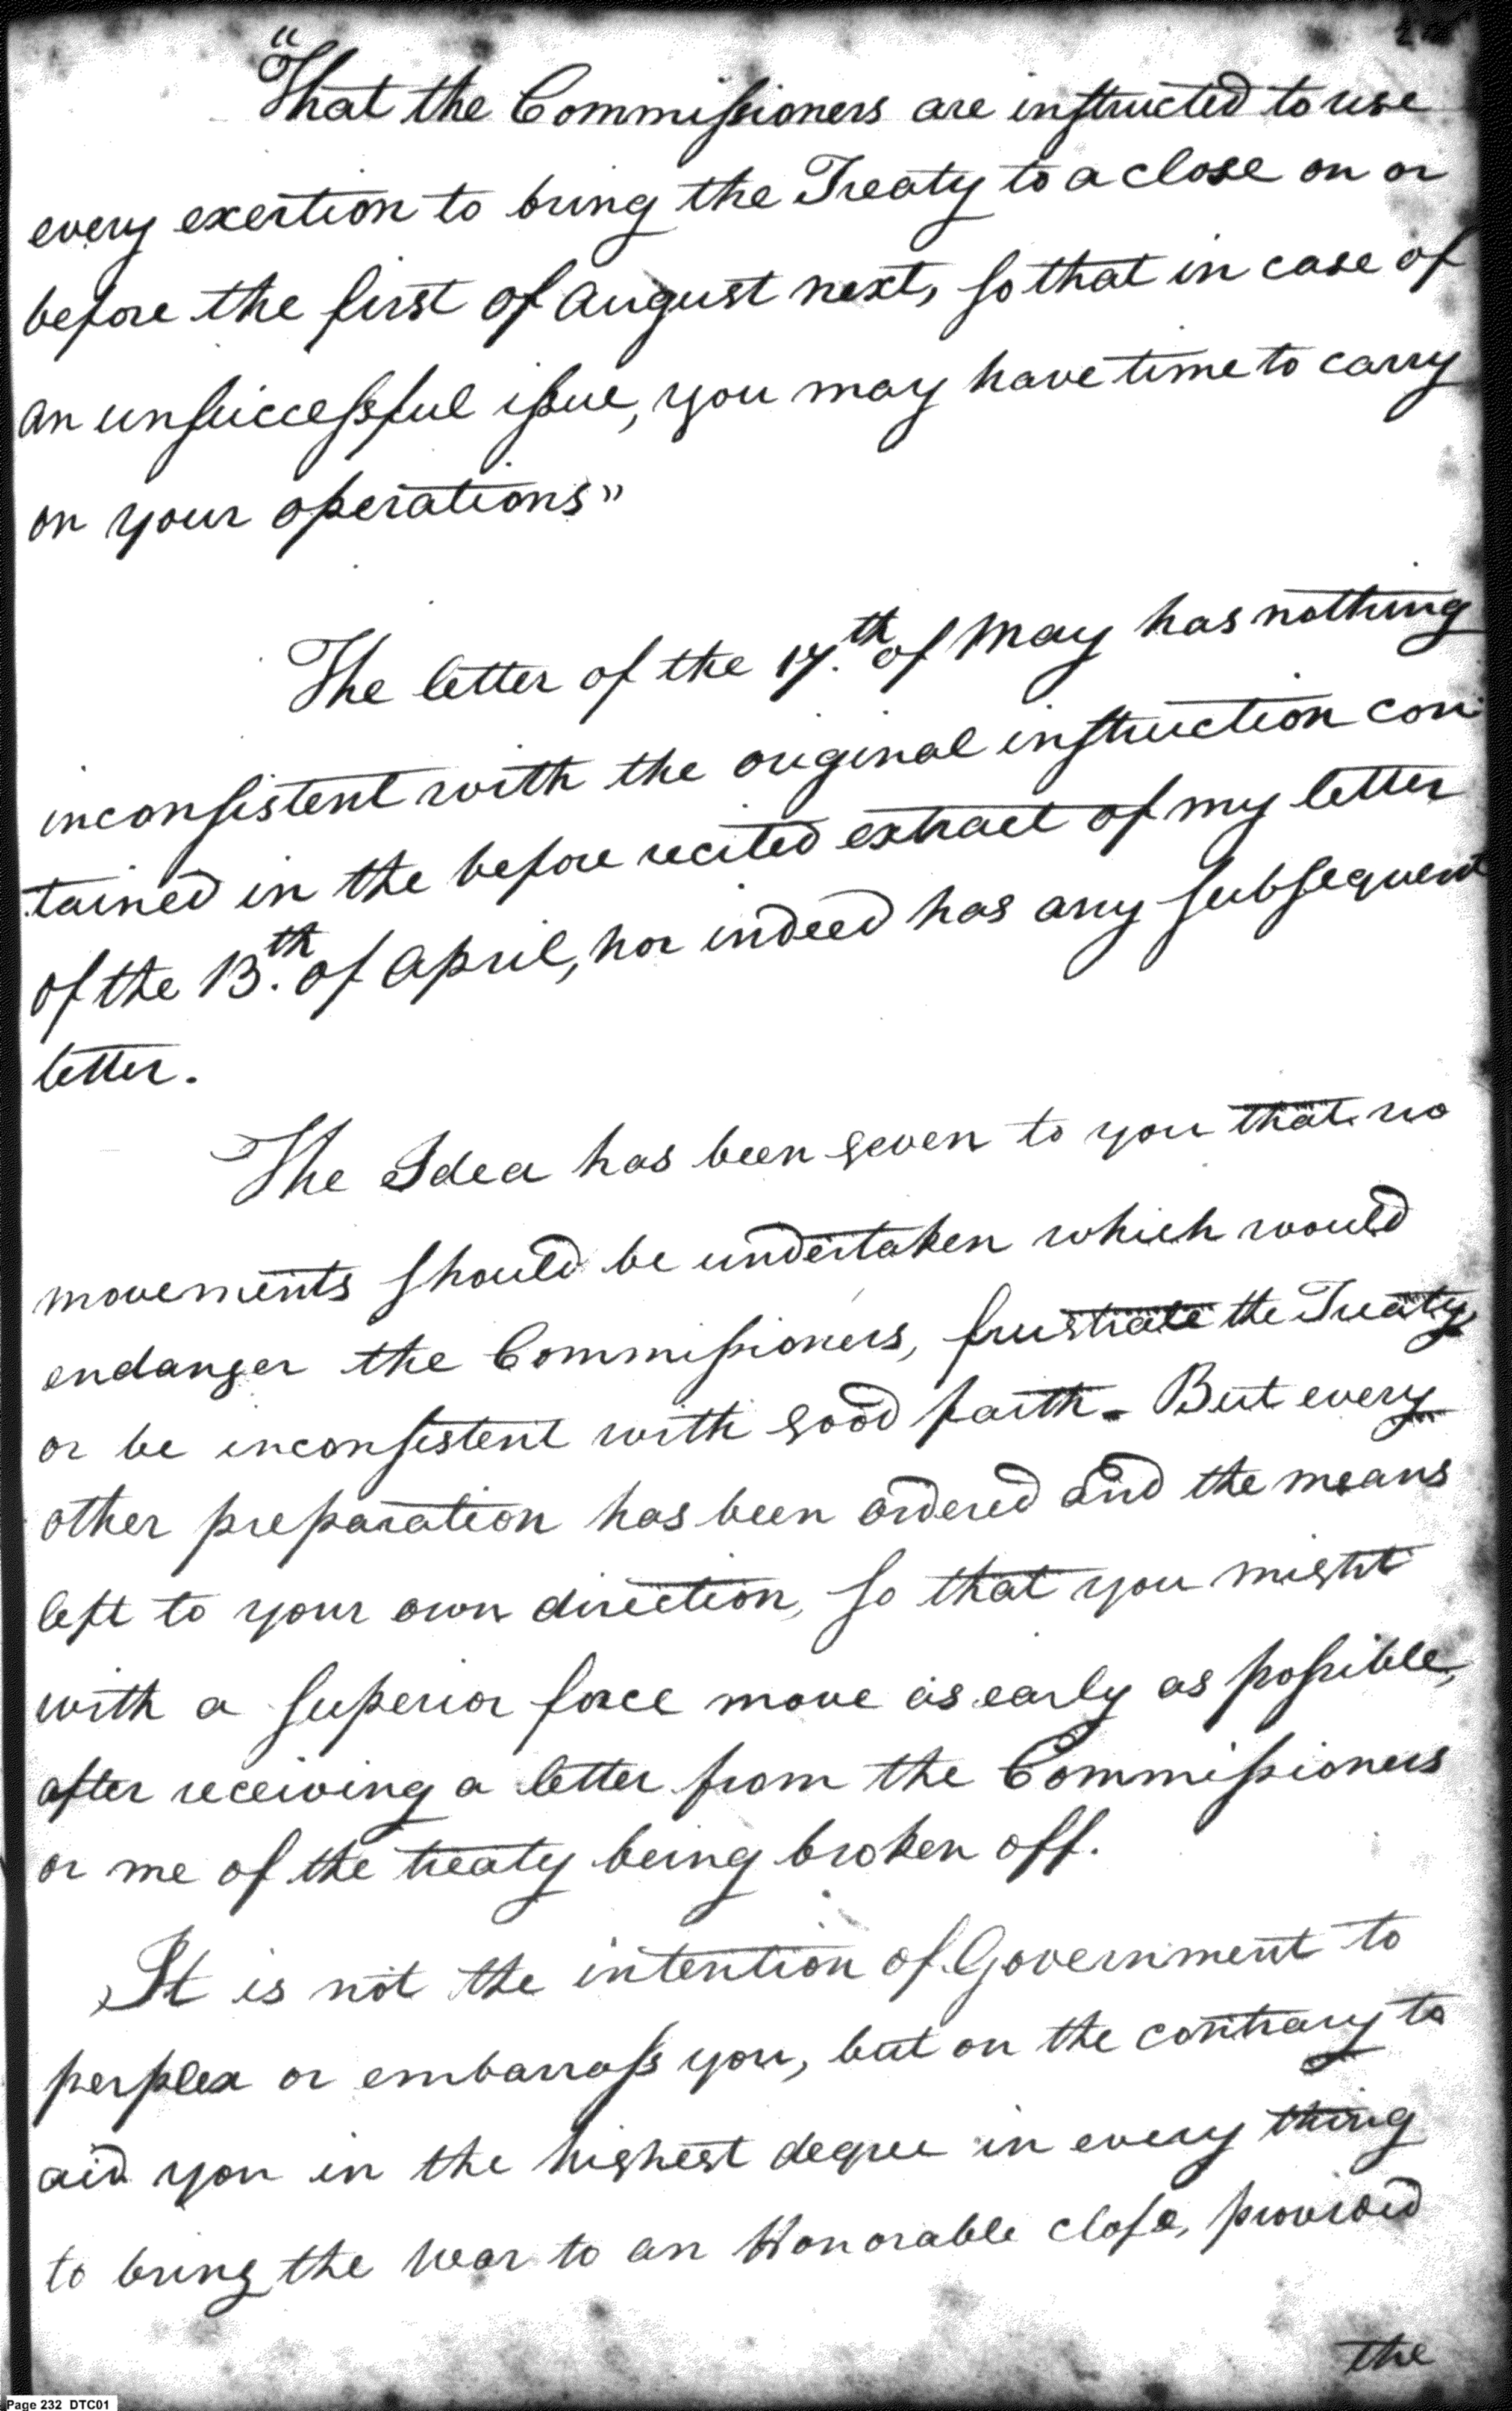 "That the Commissioners are instructed to use
every exertion to bring the Treaty to a close on or
before the first of August next, so that in case of
an unsuccessful issue, you may have time to carry
on your operations"
The letter of the 17.th of May has nothing
inconsistent with the original instruction con
tained in the before recited extract of my letter
of the 13.th of April, nor indeed has any subsequent
letter.
The Idea has been geven to you that no
movements should be undertaken which would
endanger the Commissioners, frustrate the Treaty,
or be inconsistent with good faith. But every
other preparation has been ordered and the means
left to your own direction, so that you might
with a superior force move as early as possible,
after receiving a letter from the Commissioners
or me of the treaty being broken off.
It is not the intention of Government to
perplex or embarrass you, but on the contrary to
aid you in the highest degree in every thing
to bring the War to an Honorable close, provided
the
Page 232 DTC01